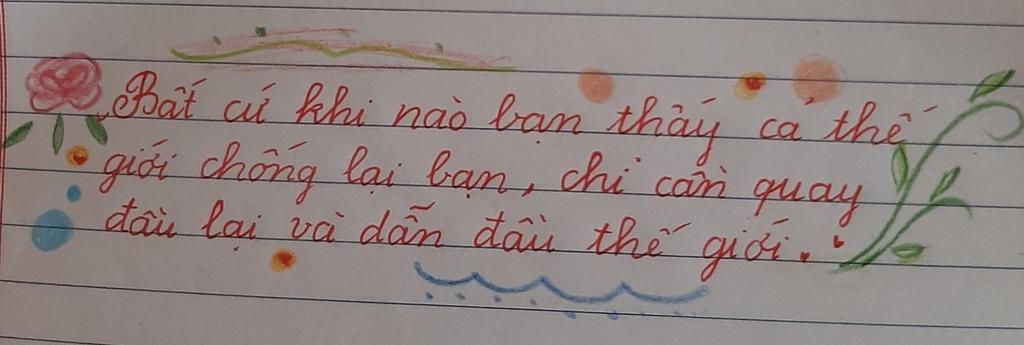 Bất cứ khi nào bạn thấy cả thế
giới chống lại bạn, chỉ cần quay
đầu lại và dẫn đầu thế giới.